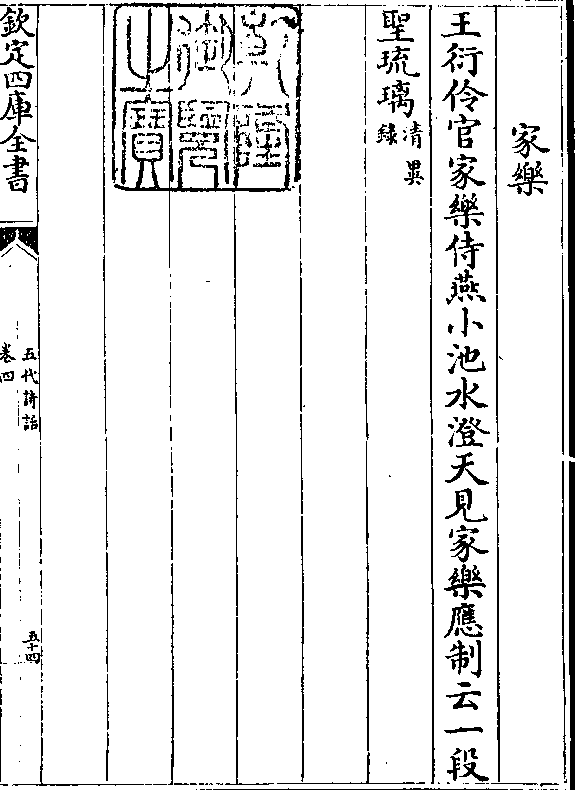 家樂
王衍伶官家樂侍燕小池水澄天見家樂應制云一段
聖琉璃清異
録
乾隆
御覽
之寶
欽定四庫全書
五代詩話
卷四
五十四